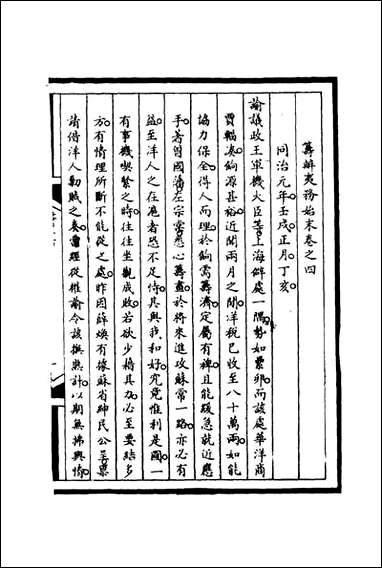 籌辦夷務始末卷之四
同治元年壬戌正月丁亥
諭議政王軍機大臣等上海僻處一隅勢如累卵而該處華洋商
賈輻湊餉源甚裕近聞兩月之間洋稅已收至八十萬兩如能
協力保全得人而理於餉需籌濟定屬有裨且能緩急就近應
手著曾國藩左宗棠悉心籌畫於將來進攻蘇常一路亦必有
益至洋人之在滬者恐不足恃其與我和好究竟惟利是圖一
有事機喫緊之時往往坐觀成敗若欲少藉其力必至要結多
方有情理所斷不能從之處昨因薛煥有據蘇省紳民公呈稟
請借洋人勦賊之奏當經從權諭令該撫熟計以期無拂輿情